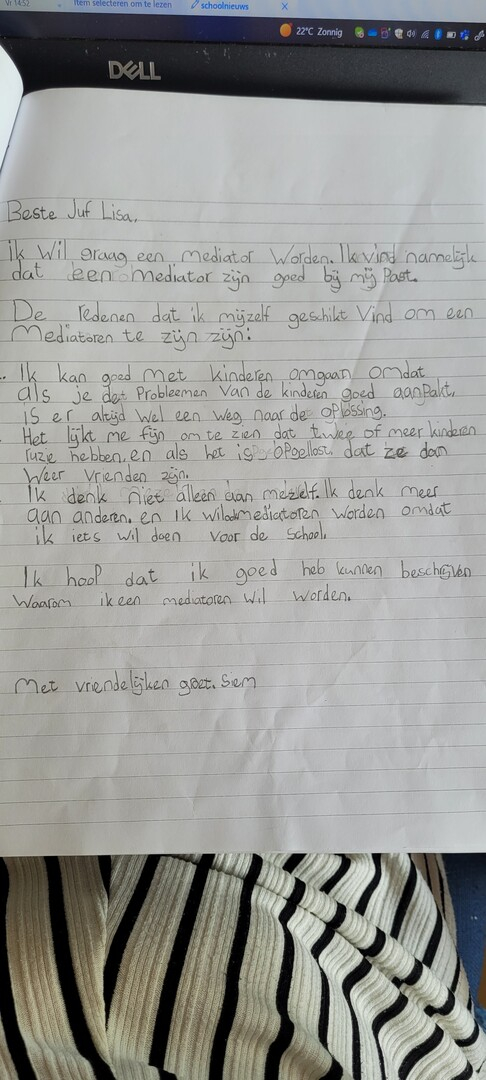 Vr 14:52
Item selecteren om te lezen
schoolnieuws
X
22°C Zonnig
DELL
Beste Juf Lisa,
ik wil graag een mediator worden. Ik vind namelijk
dat een mediator zijn goed bij mij Past.
De redenen dat ik mijzelf geschikt vind om een
Mediatoren te zijn zijn:
Ik kan goed met kinderen omgaan omdat
als je de Probleemen van de kinderen goed aanpakt,
is er altijd wel een weg naar de oplossing.
Het lijkt me fijn om te zien dat twee of meer kinderen
ruzie hebben. en als het is opgelost. dat ze dan
weer vrienden zijn.
Ik denk niet alleen aan mezelf. Ik denk meer
aan anderen. en ik wil mediatoren worden omdat
ik iets wil doen voor de school.
Ik hoop dat ik goed heb kunnen beschrijven
waarom ik een mediatoren wil worden.
Met vriendelijken groet. Siem